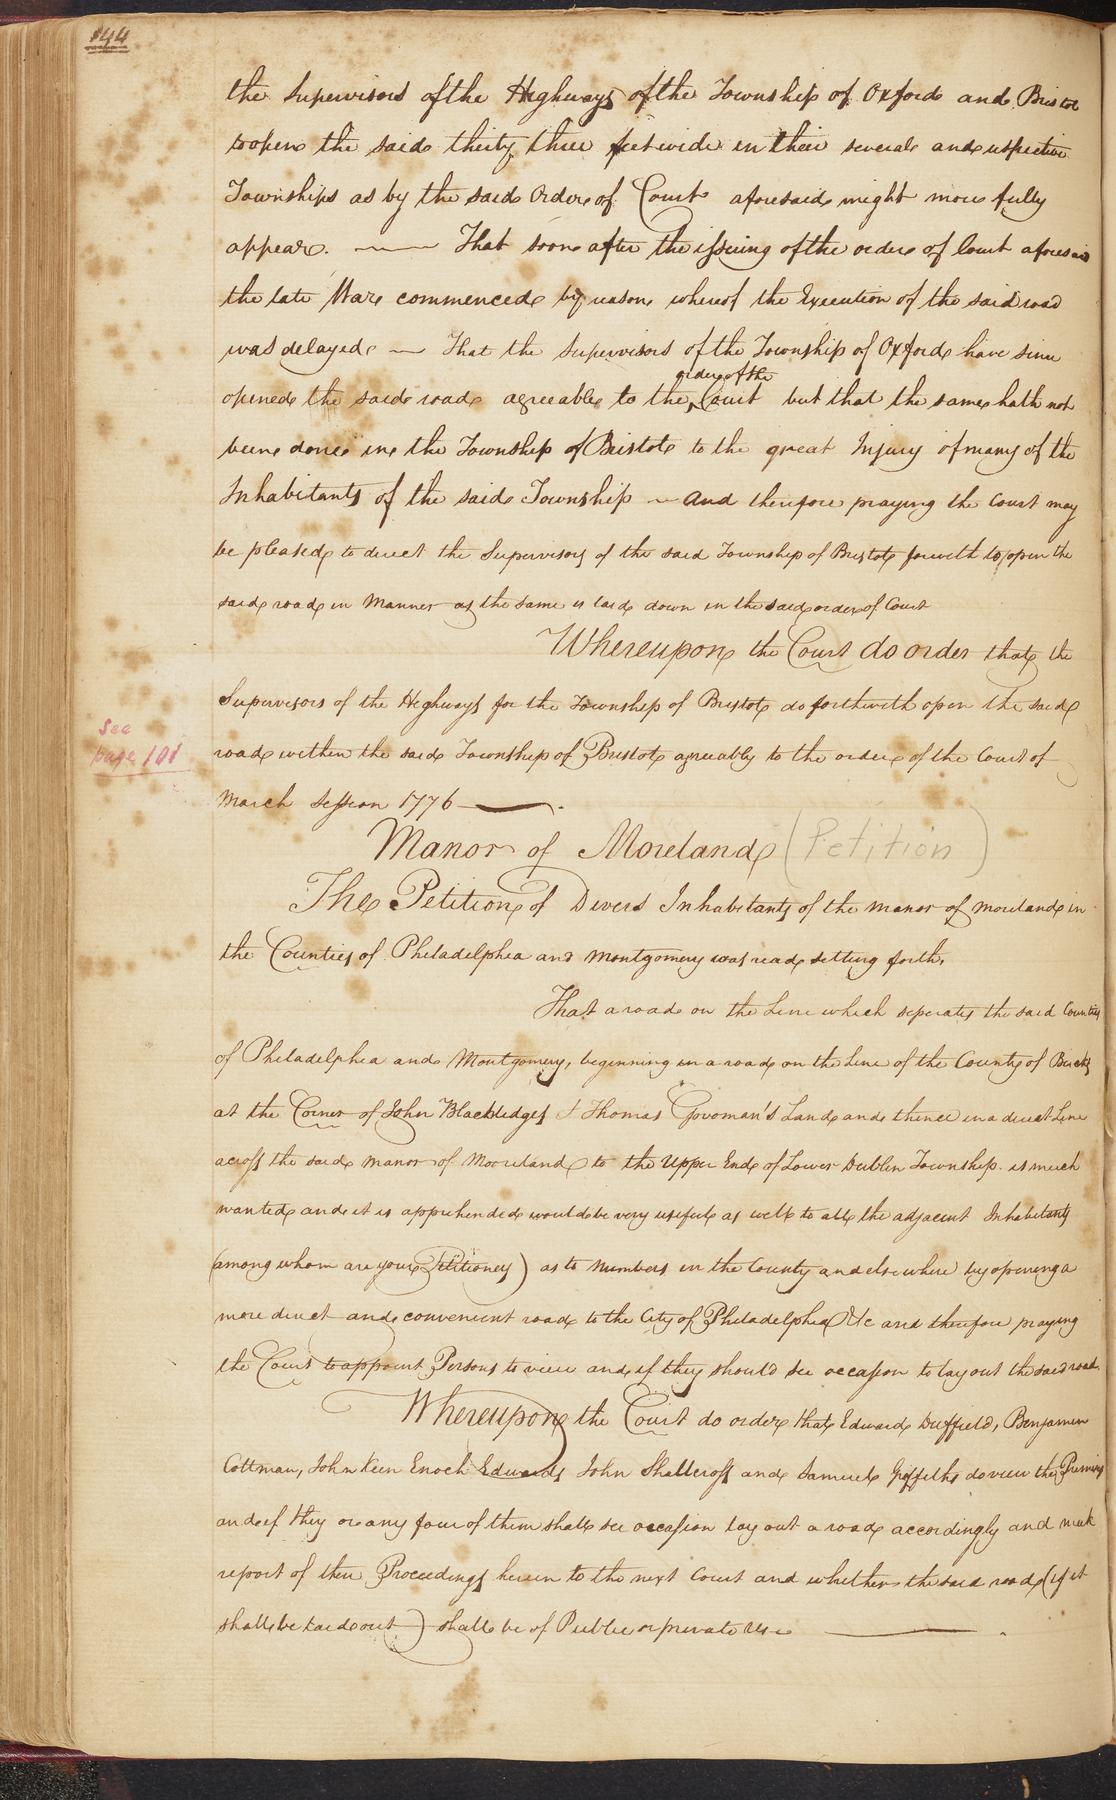 144
the Supervisors of the Highways of the Township of Oxford and Bristol
to open the said thirty three feet wide in their several and respective
Townships as by the said Order of Court aforesaid might more fully
appear. — That soon after the issuing of the order of Court aforesaid
the late War commenced by reason whereof the Execution of the said road
was delayed — That the Supervisors of the Township of Oxford have since
order of the
opened the said road agreeable to the Court but that the same hath not
been done in the Township of Bristol to the great Injury of many of the
Inhabitants of the said Township — and therefore praying the Court may
be pleased to direct the Supervisors of the said Township of Bristol forwith to open the
said road in Manner as the same is laid down in the said order of Court
Whereupon the Court do order that the
Supervisors of the Highways for the Township of Bristol do forthwith open the said
See
page 101
road within the said Township of Bristol agreeably to the order of the Court of
March Session 1776 —
Manor of Moreland (Petition)
The Petition of Divers Inhabitants of the Manor of Moreland in
the Counties of Philadelphia and Montgomery was read setting forth,
That a road on the Line which seperates the said Counties
of Philadelphia and Montgomery, beginning in a road on the Line of the County of Bucks
at the Corner of John Blackledges & Thomas Govoman's Land and thence in a direct Line
across the said Manor of Mooreland to the Upper End of Lower Dublin Township is much
wanted and it is apprehended would be very useful as well to all the adjacent Inhabitants
(among whom are your Petitioners) as to Numbers in the County and elsewhere by opening a
more direct and convenient road to the City of Philadelphia &c and therefore praying
the Court to appoint Persons to view and if they should see occasion to lay out the said road.
Whereupon the Court do order that Edward Duffield, Benjamin
Cottman, John Keen Enoch Edwards John Shallcross and Samuel Griffiths do view the Premises
and if they or any four of them shall see occasion lay out a road accordingly and make
report of their Proceedings herein to the next Court and whether the said road (if it
shall be laid out) shall be of Public or private Use —